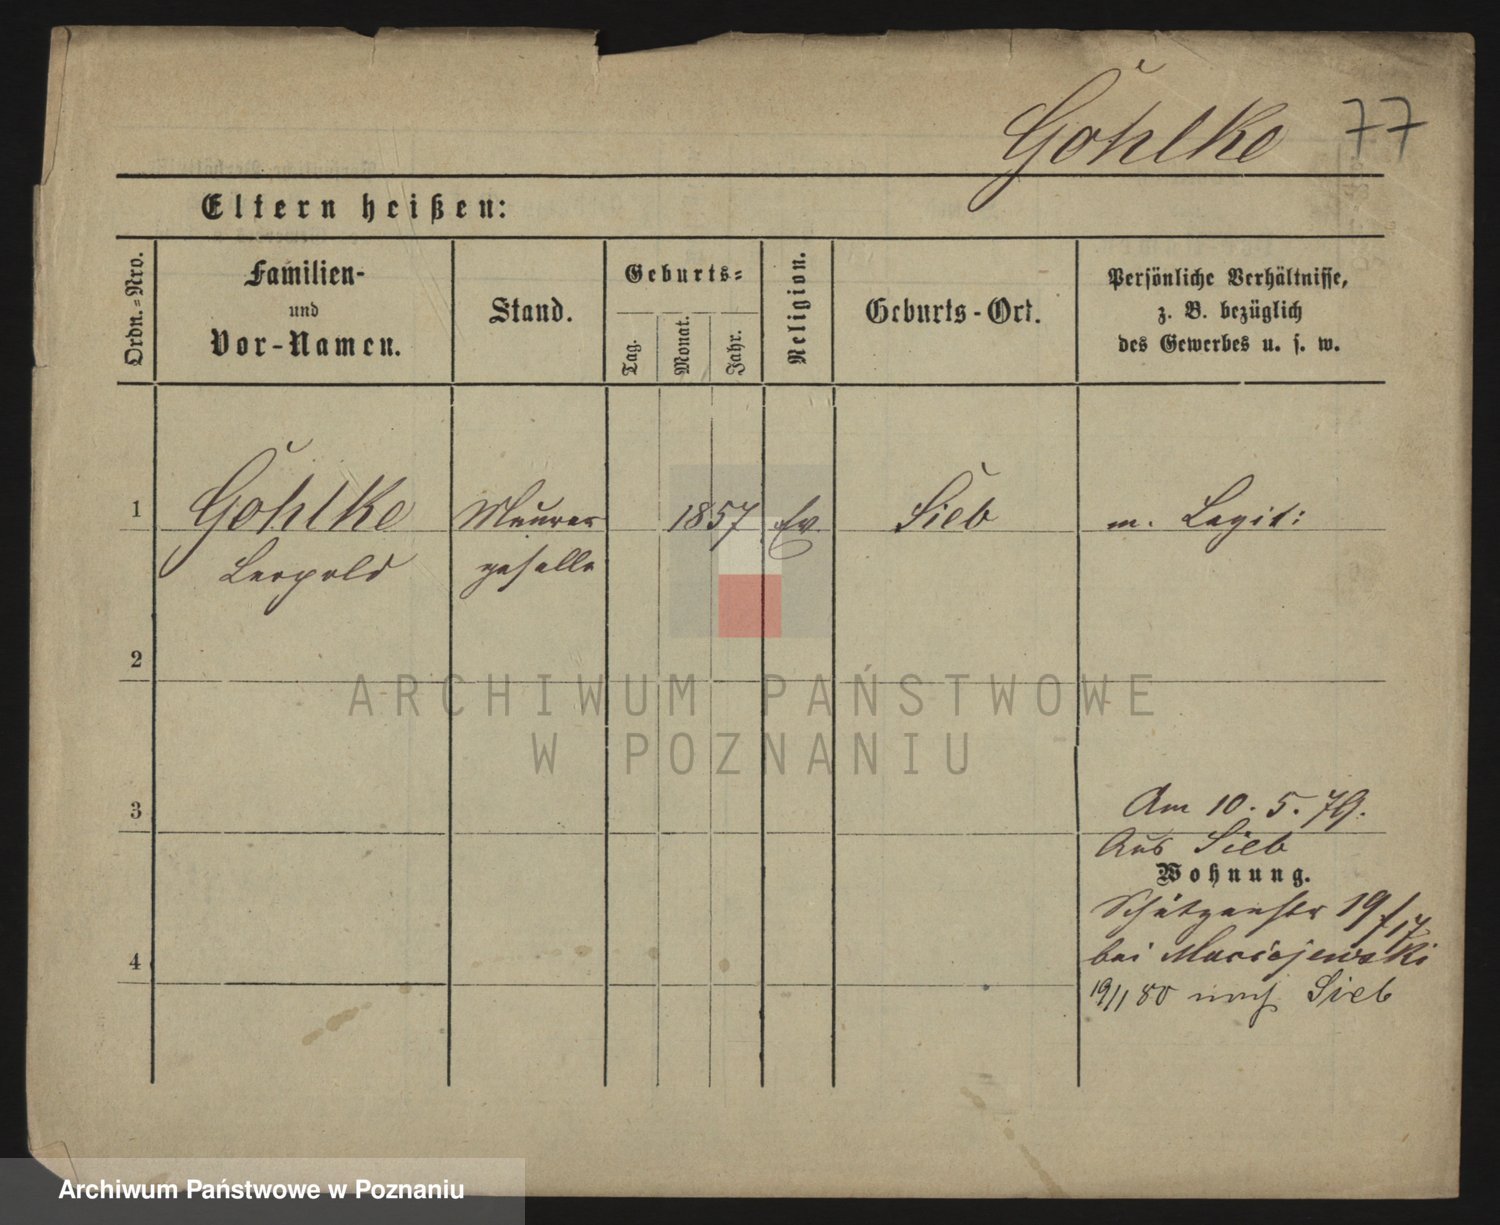 Göhlke 77
Eltern heißen:
Ordn.=Nro.
Familien-
und
Vor-Namen.
Stand.
Geburts=
Tag.
Monat.
Jahr.
Religion.
Geburts-Ort.
Persönliche Verhältnisse,
z. B. bezüglich
des Gewerbes u. s. w.
1 Göhlke Maurer 1857 Ev. Sieb m. Legit:
Leopold geselle
2
ARCHIWUM PAŃSTWOWE
W POZNANIU
3
Am 10. 5. 79.
Aus Sieb
Wohnung.
Schützenstr 19/17
4 bei Maciejewski
19/11 80 nach Sieb
Archiwum Państwowe w Poznaniu